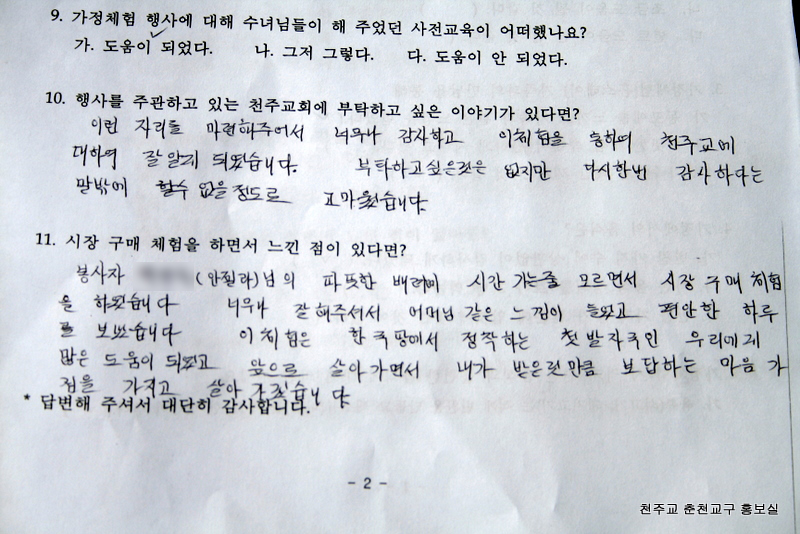 9. 가정체험 행사에 대해 수녀님들이 해 주었던 사전교육이 어떠했나요?
가. 도움이 되었다. 나. 그저 그렇다. 다. 도움이 안 되었다.
10. 행사를 주관하고 있는 천주교회에 부탁하고 싶은 이야기가 있다면?
이런 자리를 마련해주어서 너무나 감사하고 이체험을 통하여 천주교에
대하여 잘 알게 되였습니다. 부탁하고싶은것은 없지만 다시한번 감사하다는
말밖에 할수 없을 정도로 고마웠습니다.
11. 시장 구매 체험을 하면서 느낀 점이 있다면?
봉사자 (안젤라)님의 따뜻한 배려에 시간 가는줄 모르면서 시장 구매 체험
을 하였습니다 너무나 잘해주셔서 어머님 같은 느낌이 들었고 편안한 하루
를 보냈습니다 이 체험은 한국땅에서 정착하는 첫 발자국인 우리에게
많은 도움이 되였고 앞으로 살아가면서 내가 받은것만큼 보답하는 마음 가
짐을 가지고 살아 가겠습니다
* 답변해 주셔서 대단히 감사합니다.
- 2 -
천주교 춘천교구 홍보실